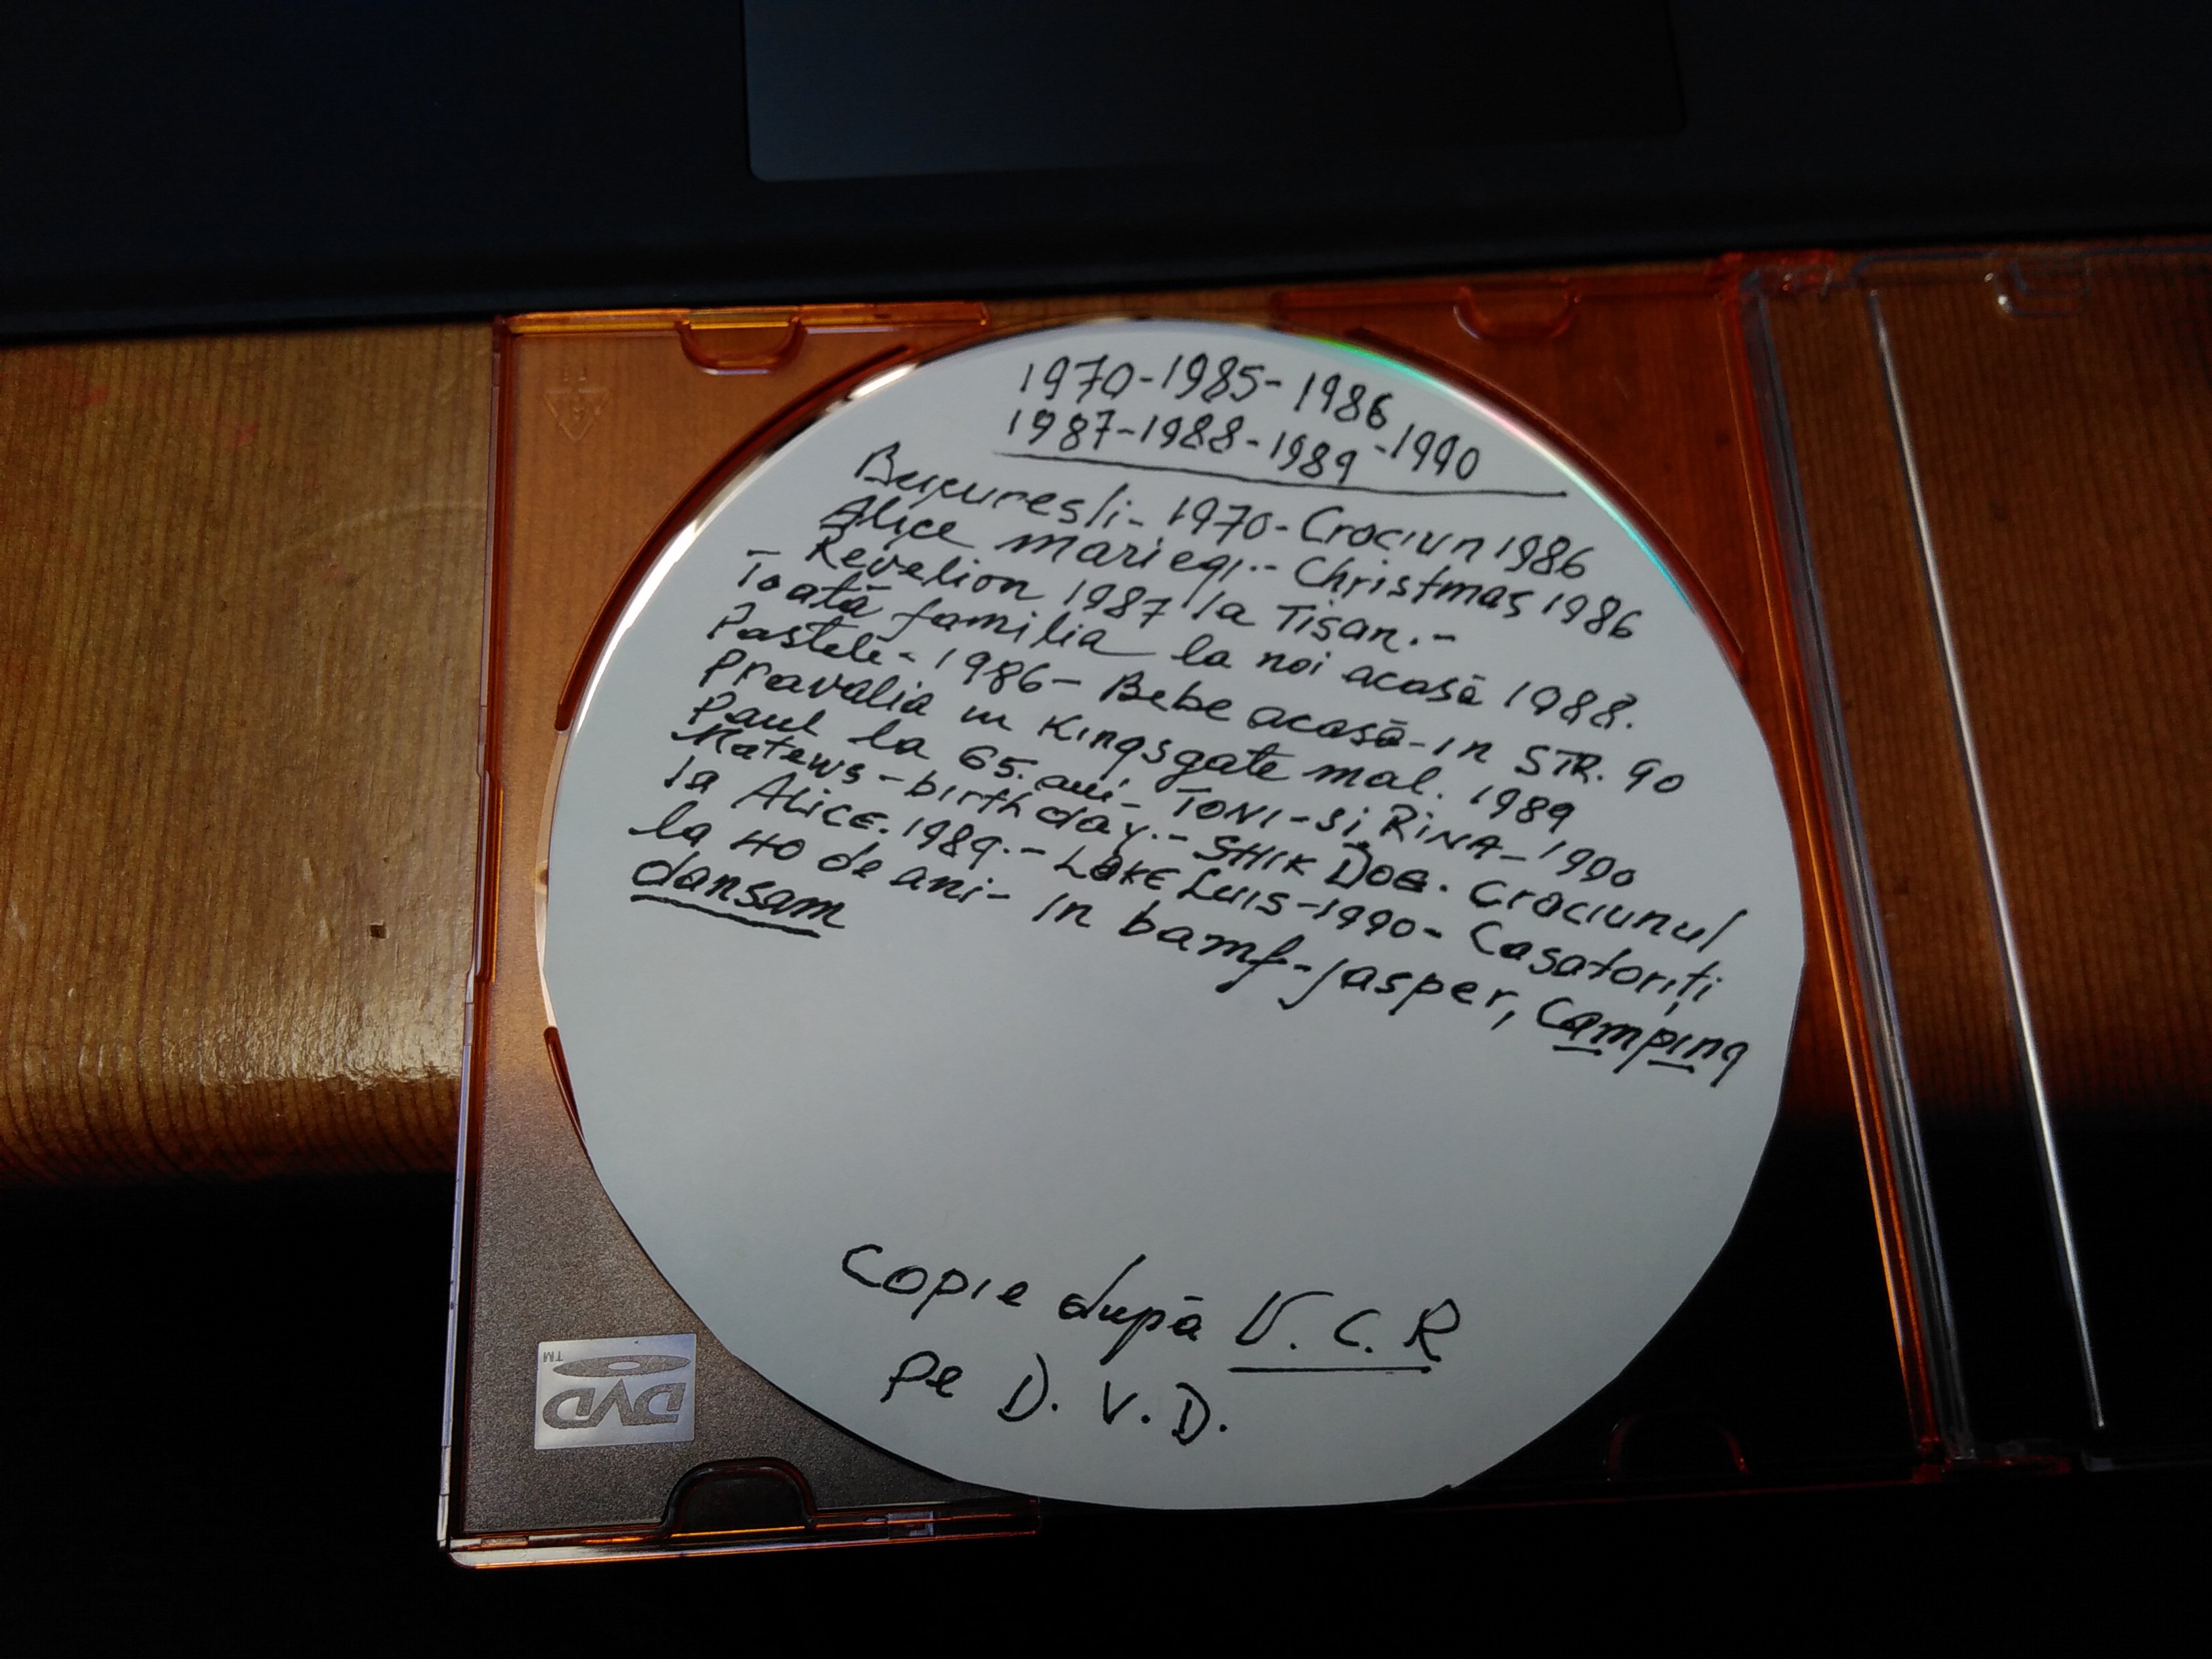 1970-1985-1986
1987-1988-1989-1990
Bucuresti- 1970- Craciun 1986
Alice mariegi.- Christmas 1986
- Revelion 1987 la Tisan.-
Toată familia la noi acasă 1988.
Pastele- 1986- Bebe acasă- in STR. 90
Pravalia in Kingsgate mal. 1989
Paul la 65. ani- TONI-Si RiNA- 1990
Matews- birthday.- SHIK DOG. Craciunul
la Alice. 1989.- LAKE Luis-1990- Casatoriți
la 40 de ani- in bamf-Jasper, Camping
dansam
Copie după V.C.R
Pe D.V.D.
DVD
TM